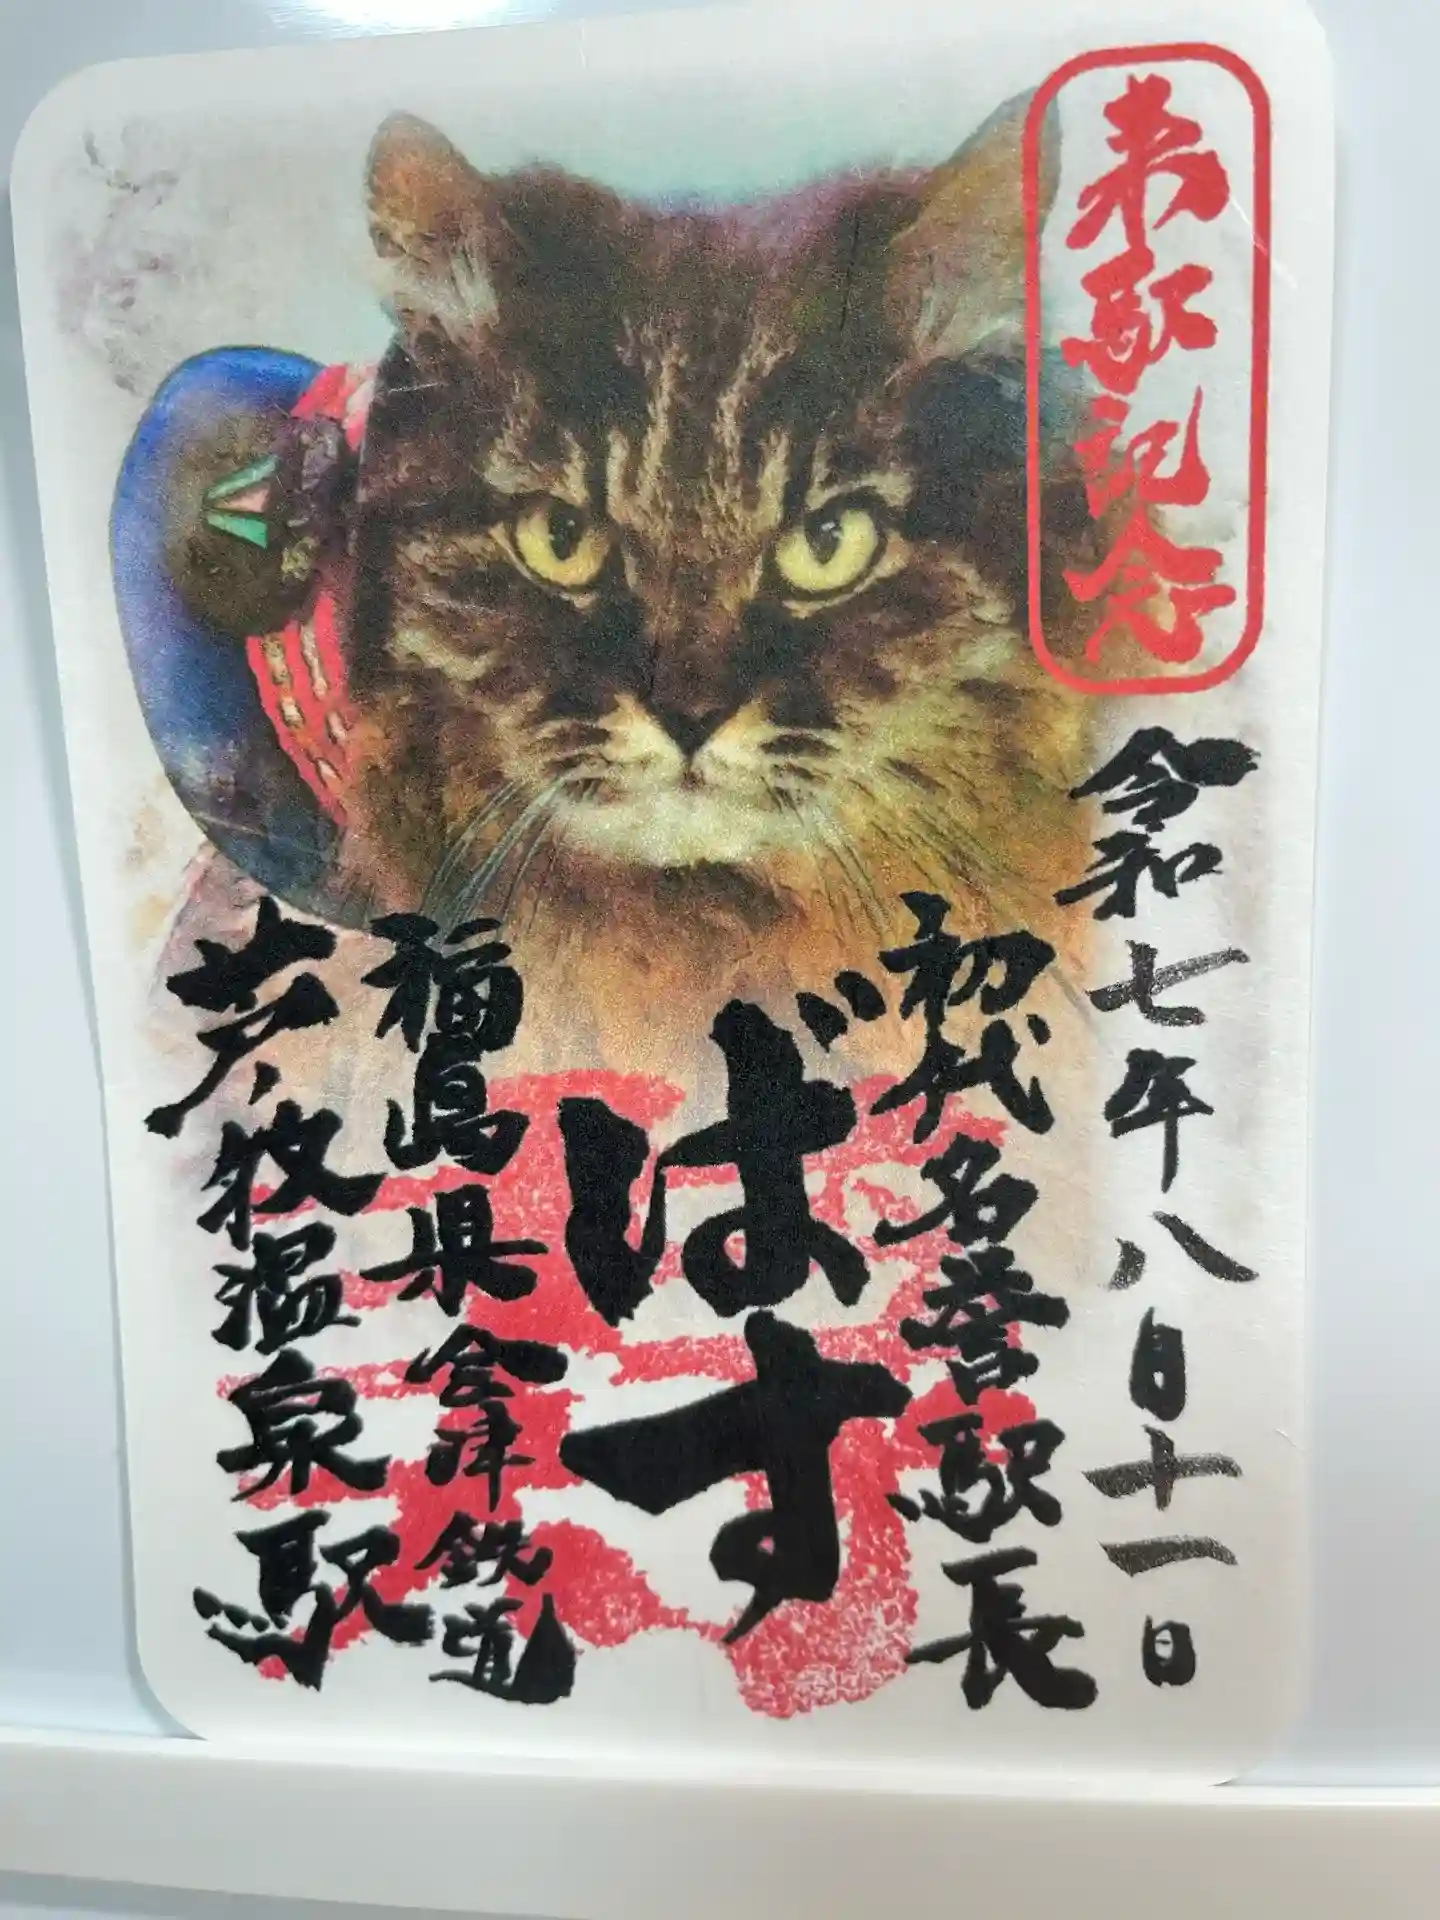 来駅記念
令和七年八月十一日
初代名誉駅長
ばす
福島県会津鉄道
芦ノ牧温泉駅